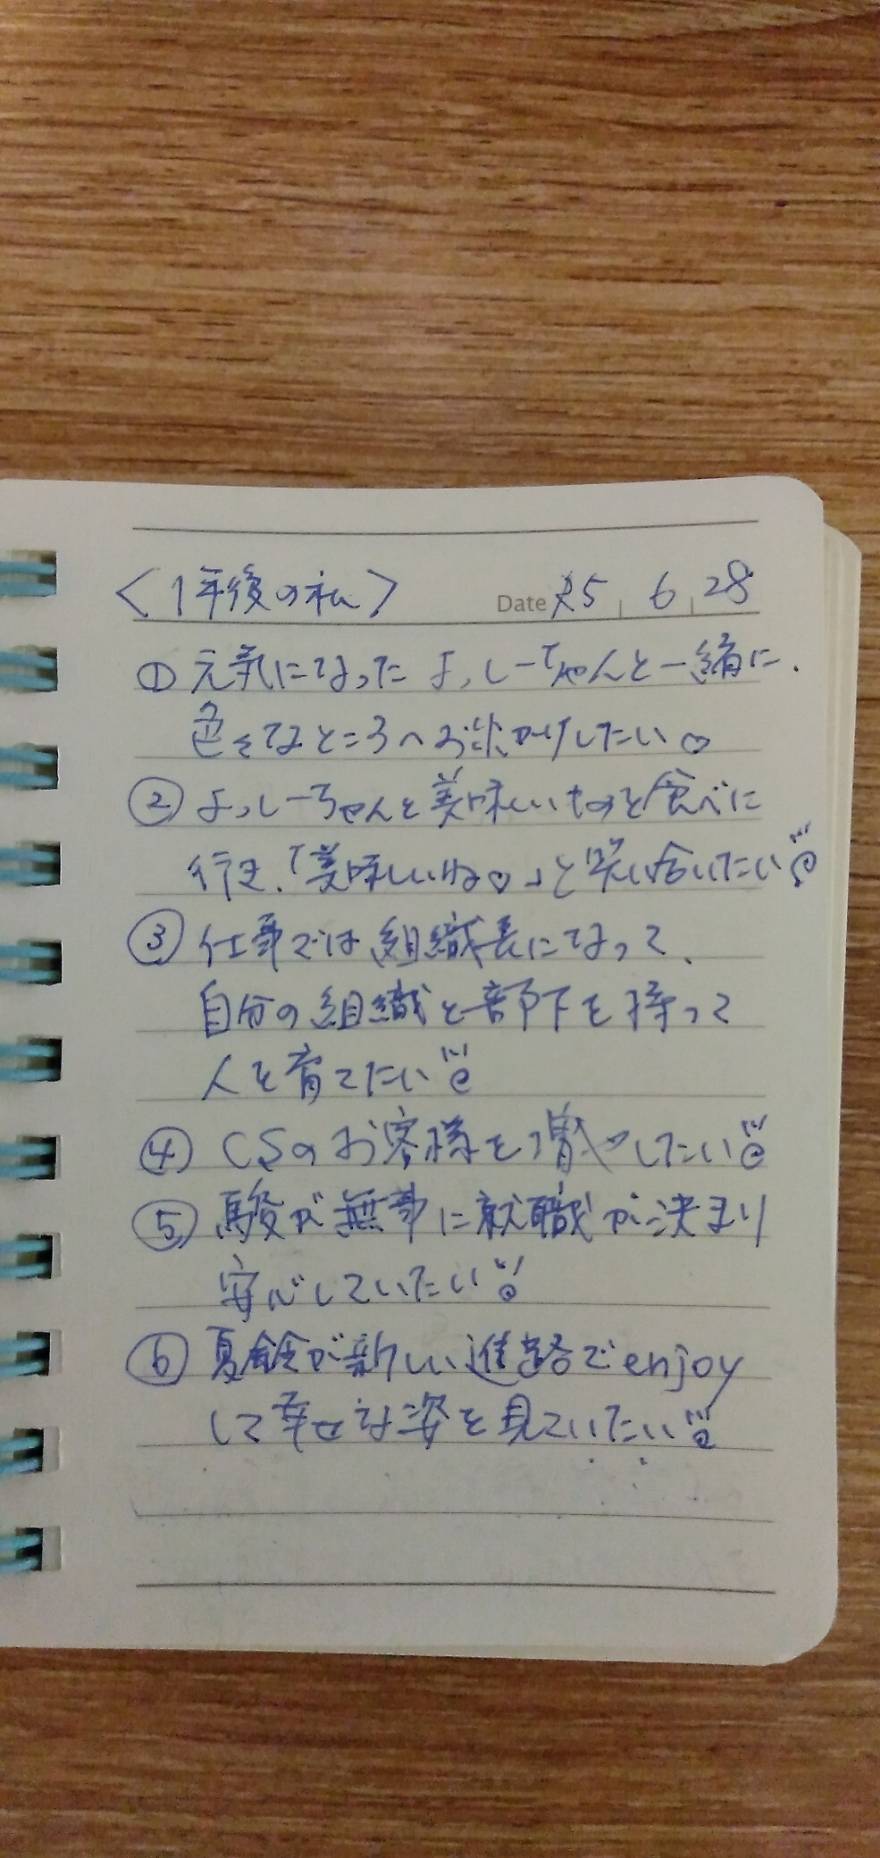 <1年後の私> Date 25 6 28
① 元気になったよっしーちゃんと一緒に、
色々なところへお出かけしたい♡
② よっしーちゃんと美味しいものを食べに
行き、「美味しいね♡」と笑い合いたい!!
③ 仕事では組織長になって、
自分の組織と部下を持って
人を育てたい!!
④ CSのお客様を増やしたい!!
⑤ 駿が無事に就職が決まり
安心していたい!!
⑥ 夏鈴が新しい進路でenjoy
して幸せな姿を見ていたい!!